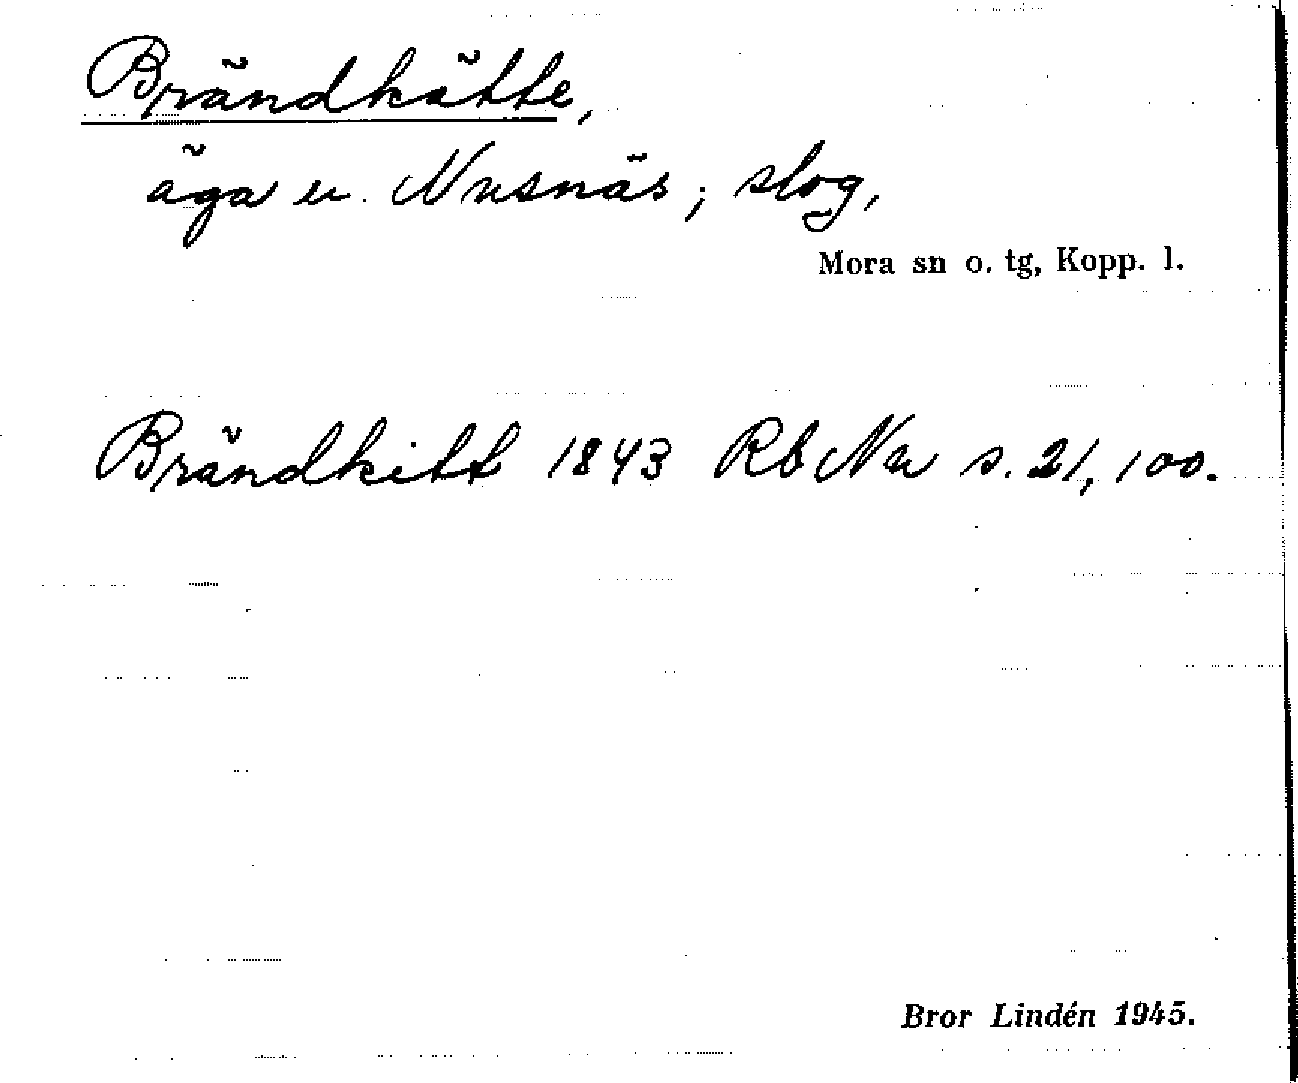 Brändkätte,
äga u. Nusnäs; slog,
Mora sn o. tg, Kopp. l.
Brändkitt 1843 Rb Nu s. 21, 100.
Bror Lindén 1945.